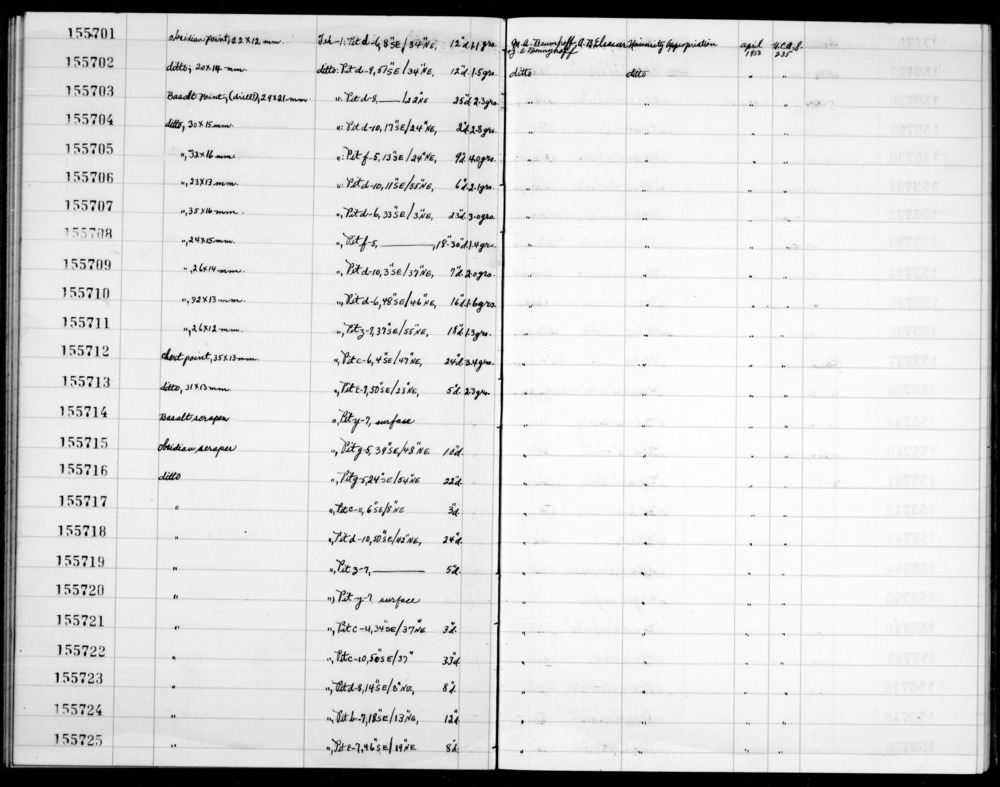 155701 obsidian point, 22 X 12 mm. Teh-1: Pit d-6, 8"SE/34"NE, 12"d. 1.1 grs. A.B. Elsasser University Appropriation April 1953 U.C.A.S. 235
155702 ditto; 20X14 mm. ditto: Pit d-9, 57"SE/34"NE, 12"d. 1.5 grs. ditto ditto " "
155703 Basalt point, (drill), 29X21 mm " Pit d-8, ——/22"NE 25"d. 2.3 grs. " " " "
155704 ditto, 30X15 mm. ": Pit d-10, 17"SE/24"NE, 2"d. 2.8 grs. " " " "
155705 ", 32X16 mm. ": Pit f-5, 13"SE/24"NE, 9"d. 4.0 grs. " " " "
155706 ", 23X13 mm. ": Pit d-10, 11"SE/55"NE, 6"d. 2.1 grs. " " " "
155707 ", 35X16 mm. ", Pit d-6, 33"SE/3"NE, 23"d. 3.0 grs. " " " "
155708 ", 24X15 mm. ", Pit f-5, ——, 18"-30"d. 1.4 grs. " " " "
155709 ", 26X14 mm. ", Pit d-10, 3"SE/37"NE, 7"d. 2.0 grs. " " " "
155710 ", 32X13 mm. ", Pit d-6, 48"SE/46"NE, 16"d. 1.6 grs. " " " "
155711 ", 26X12 mm. ", Pit g-7, 37"SE/55"NE, 18"d. 1.3 grs. " " " "
155712 chert point, 35X13 mm. ", Pit c-6, 4"SE/47"NE, 24"d. 3.4 grs. " " " "
155713 ditto, 31X13 mm. ", Pit E-7, 50"SE/23"NE, 5"d. 2.3 grs. " " " "
155714 Basalt scraper ", Pit y-7, surface " " " "
155715 obsidian scraper ", Pit g-5, 39"SE/48"NE 10"d. " " " "
155716 ditto ", Pit g-5, 24"SE/54"NE 22"d. " " " "
155717 " ", Pit c-11, 6"SE/8"NE 3"d. " " " "
155718 " ", Pit d-10, 50"SE/42"NE, 24"d. " " " "
155719 " ", Pit z-7, —— 5"d. " " " "
155720 " ", Pit y-7, surface " " " "
155721 " ", Pit c-4, 34"SE/37"NE 3"d. " " " "
155722 " ", Pit c-10, 50"SE/37" 33"d. " " " "
155723 " ", Pit d-8, 14"SE/8"NE, 8"d. " " " "
155724 " ", Pit b-7, 18"SE/13"NE, 12"d. " " " "
155725 " ", Pit E-7, 46"SE/19"NE 8"d. " " " "